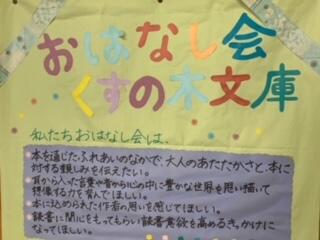 おはなし会
くすの木文庫
私たちおはなし会は、
・本を通じたふれあいのなかで、大人のあたたかさと、本に
対する親しみを伝えたい。
・耳から入った言葉や音から心の中に豊かな世界を思い描いて
想像する力を育んでほしい。
・本に込められた作者の思いを感じてほしい。
・読書に関心をもってもらい読書意欲を高めるきっかけに
なってほしい。